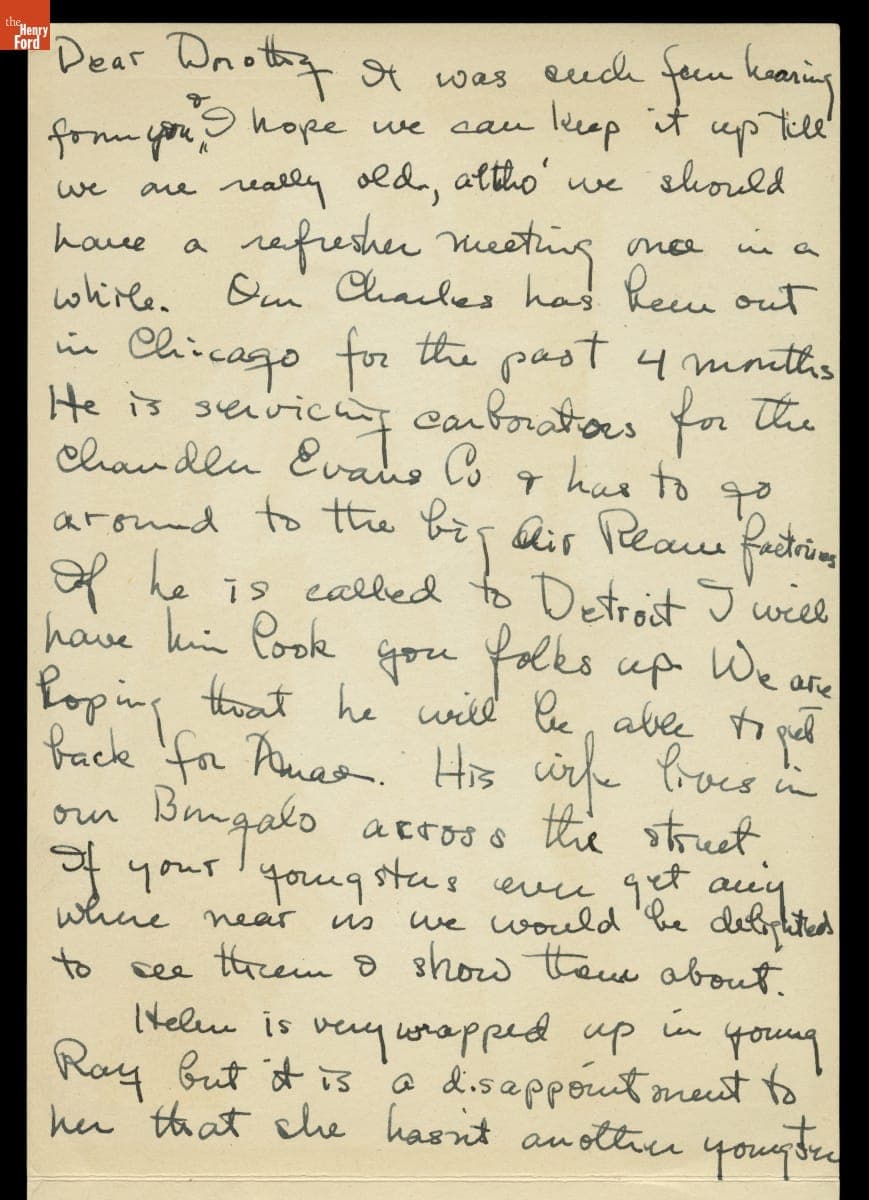 the
Henry
Ford
Dear Dorothy It was such fun hearing
form you, & I hope we can keep it up till
we are really old, altho' we should
have a refresher meeting once in a
while. Our Charles has been out
in Chicago for the past 4 months
He is servicing carborators for the
Chandler Evans Co & has to go
around to the big Air Plane factories
If he is called to Detroit I will
have him look you folks up. We are
hoping that he will be able to get
back for Xmas. His wife lives in
our Bungalo across the street
If your youngsters ever get any
where near us we would be delighted
to see them & show them about.
Helen is very wrapped up in young
Ray but it is a disappointment to
her that she hasn't another youngster